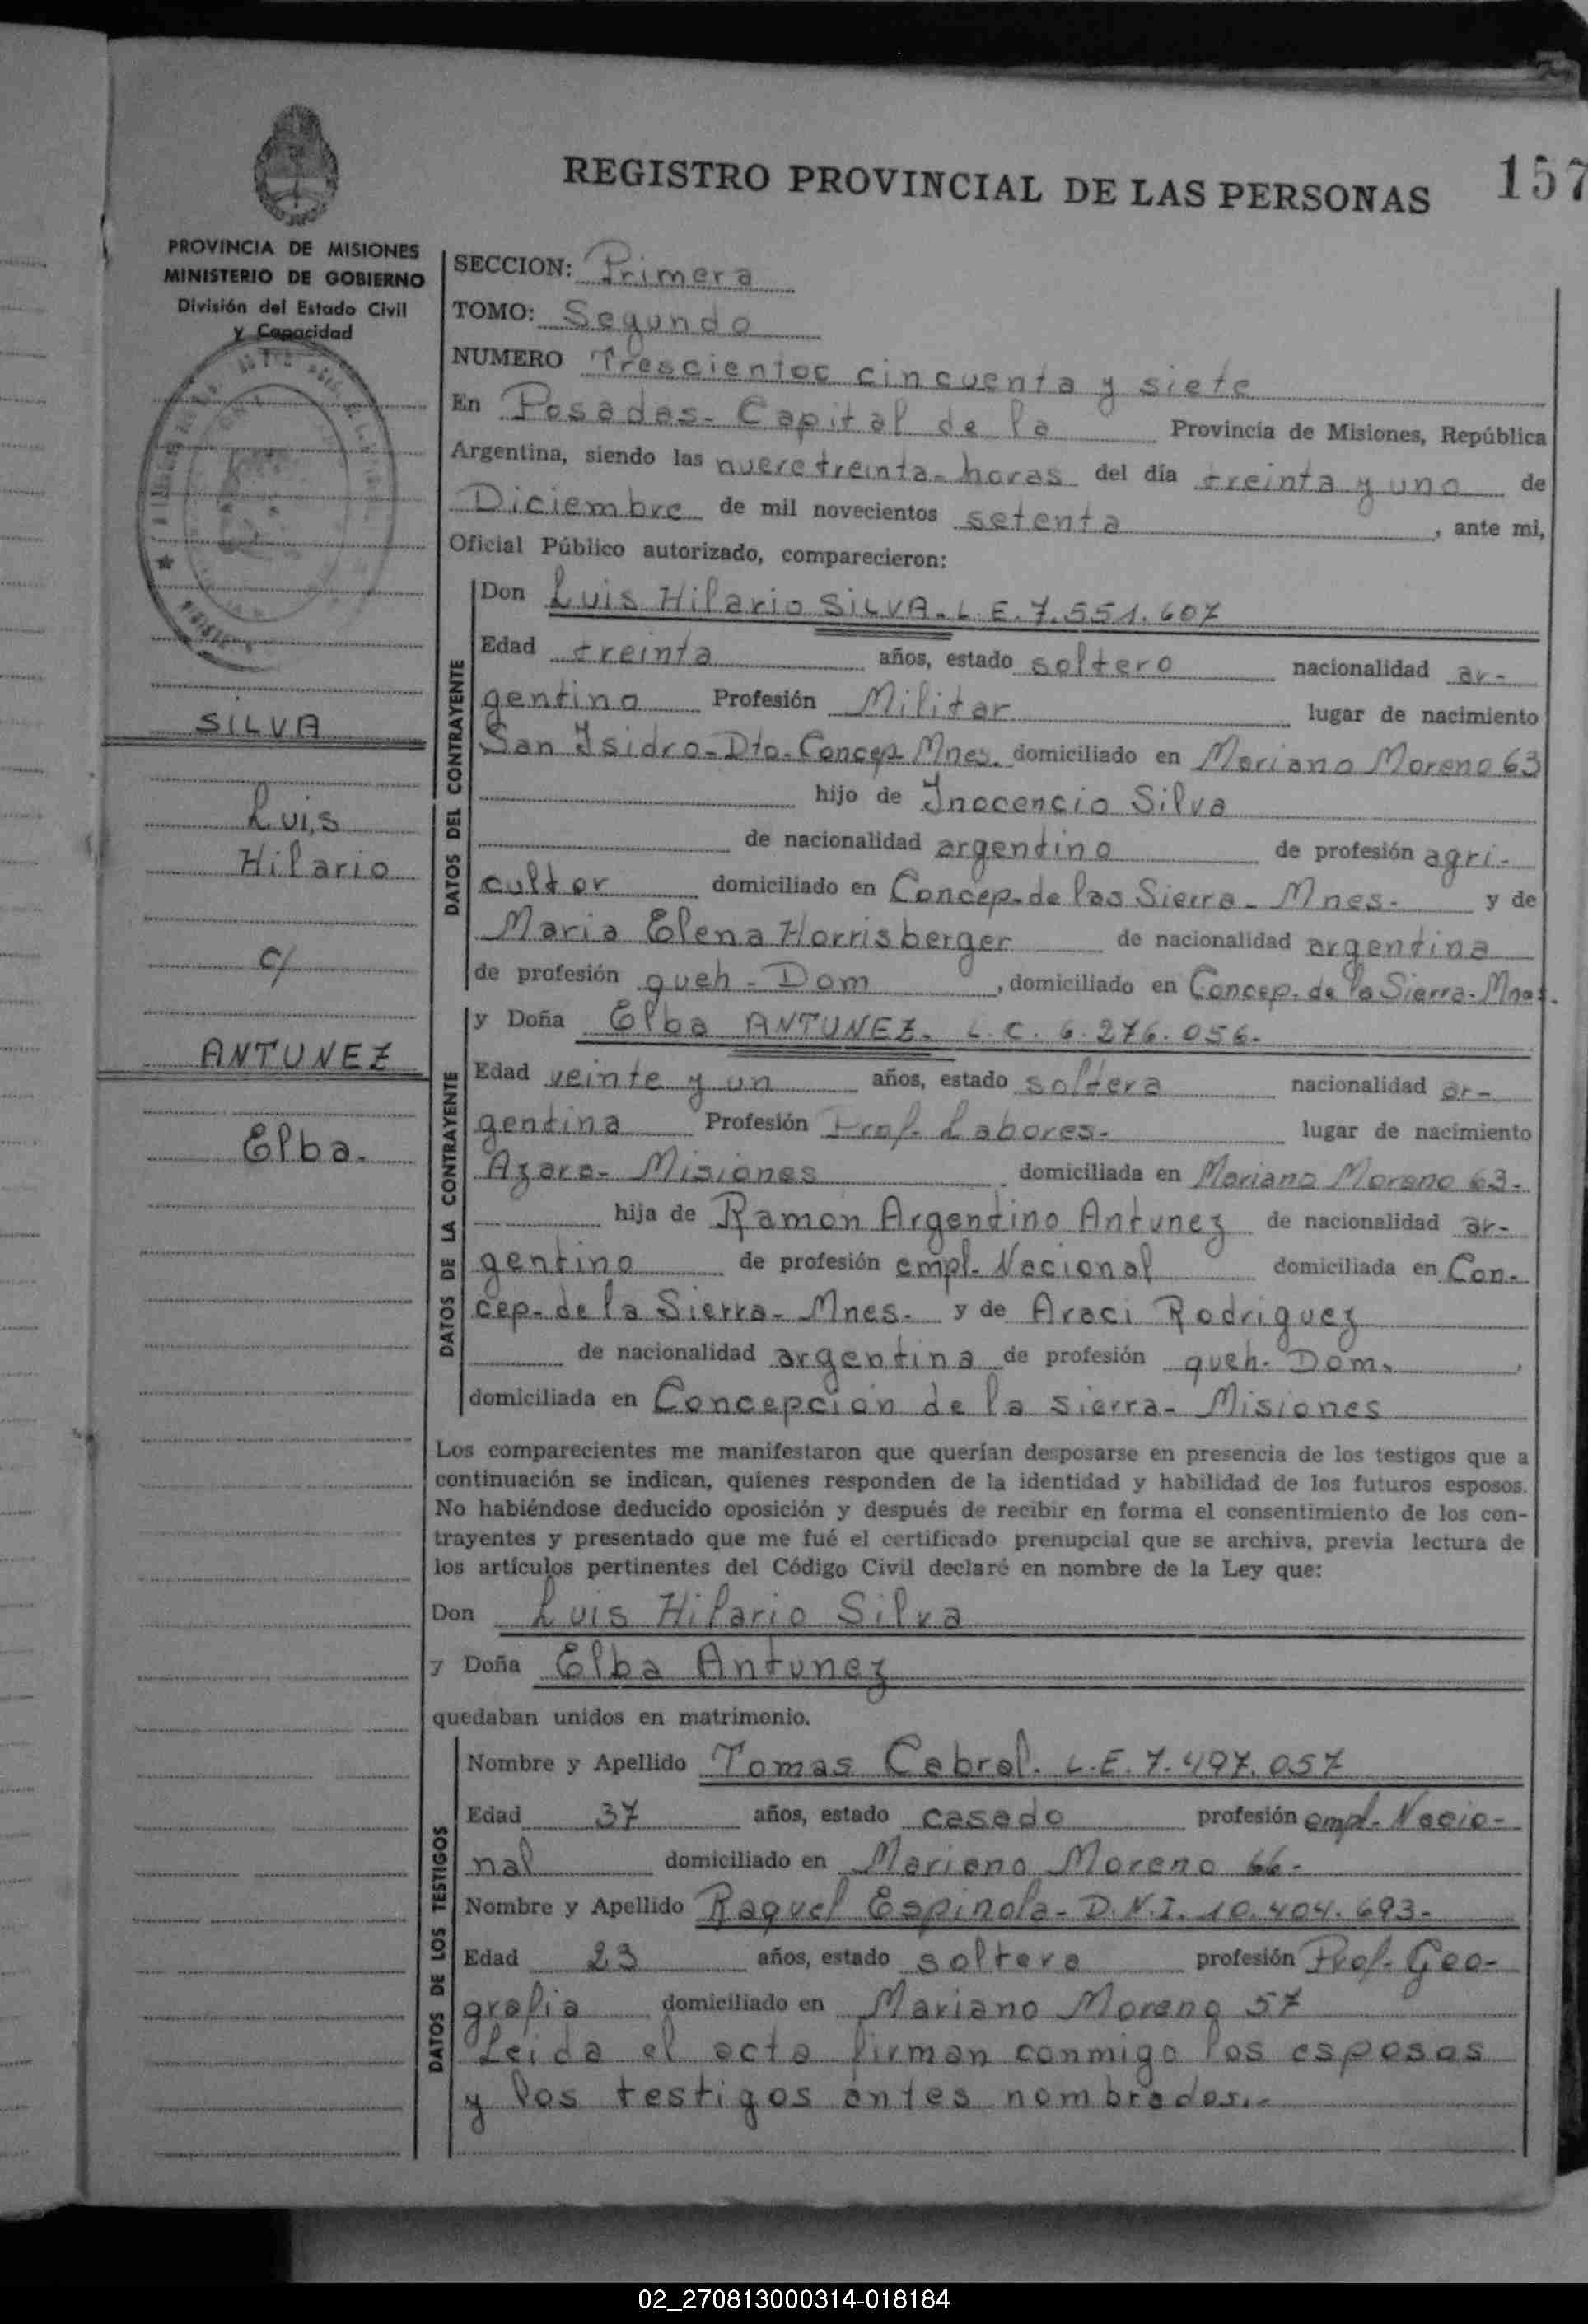 REGISTRO PROVINCIAL DE LAS PERSONAS
157
PROVINCIA DE MISIONES
MINISTERIO DE GOBIERNO
División del Estado Civil
y Capacidad
SILVA
Luis
Hilario
c/
ANTUNEZ
Elba.
SECCION: Primera
TOMO: Segundo
NUMERO Trescientos cincuenta y siete
En Posadas- Capital de la Provincia de Misiones, República
Argentina, siendo las nueve treinta- horas del día treinta y uno de
Diciembre de mil novecientos setenta, ante mi,
Oficial Público autorizado, comparecieron:
DATOS DEL CONTRAYENTE
Don Luis Hilario SILVA- L.E. 7.551.607
Edad treinta años, estado soltero nacionalidad ar-
gentino Profesión Militar lugar de nacimiento
San Isidro-Dto.-Concep Mnes. domiciliado en Mariano Moreno 63
hijo de Inocencio Silva
de nacionalidad argentino de profesión agri-
cultor domiciliado en Concep. de las Sierra- Mnes- y de
Maria Elena Horrisberger de nacionalidad argentina
de profesión queh- Dom, domiciliado en Concep. de la Sierra- Mnes.
DATOS DE LA CONTRAYENTE
y Doña Elba ANTUNEZ- L.C. 6.276.056-
Edad veinte y un años, estado soltera nacionalidad ar-
gentina Profesión Prof. Labores- lugar de nacimiento
Azara- Misiones domiciliada en Mariano Moreno 63-
hija de Ramon Argentino Antunez de nacionalidad ar-
gentino de profesión empl- Nacional domiciliada en Con-
cep- de la Sierra- Mnes- y de Araci Rodriguez
de nacionalidad argentina de profesión queh- Dom.,
domiciliada en Concepcion de la sierra- Misiones
Los comparecientes me manifestaron que querían desposarse en presencia de los testigos que a
continuación se indican, quienes responden de la identidad y habilidad de los futuros esposos.
No habiéndose deducido oposición y después de recibir en forma el consentimiento de los con-
trayentes y presentado que me fué el certificado prenupcial que se archiva, previa lectura de
los artículos pertinentes del Código Civil declaré en nombre de la Ley que:
Don Luis Hilario Silva
y Doña Elba Antunez
quedaban unidos en matrimonio.
DATOS DE LOS TESTIGOS
Nombre y Apellido Tomas Cabral- L.E. 7.497.057
Edad 37 años, estado casado profesión empl- Nacio-
nal domiciliado en Mariano Moreno 66-
Nombre y Apellido Raquel Espinola- D.N.I. 10.404.693-
Edad 23 años, estado soltera profesión Prof- Geo-
grafia domiciliado en Mariano Moreno 57
Leida el acta firman conmigo los esposos
y los testigos antes nombrados.-
02_270813000314-018184